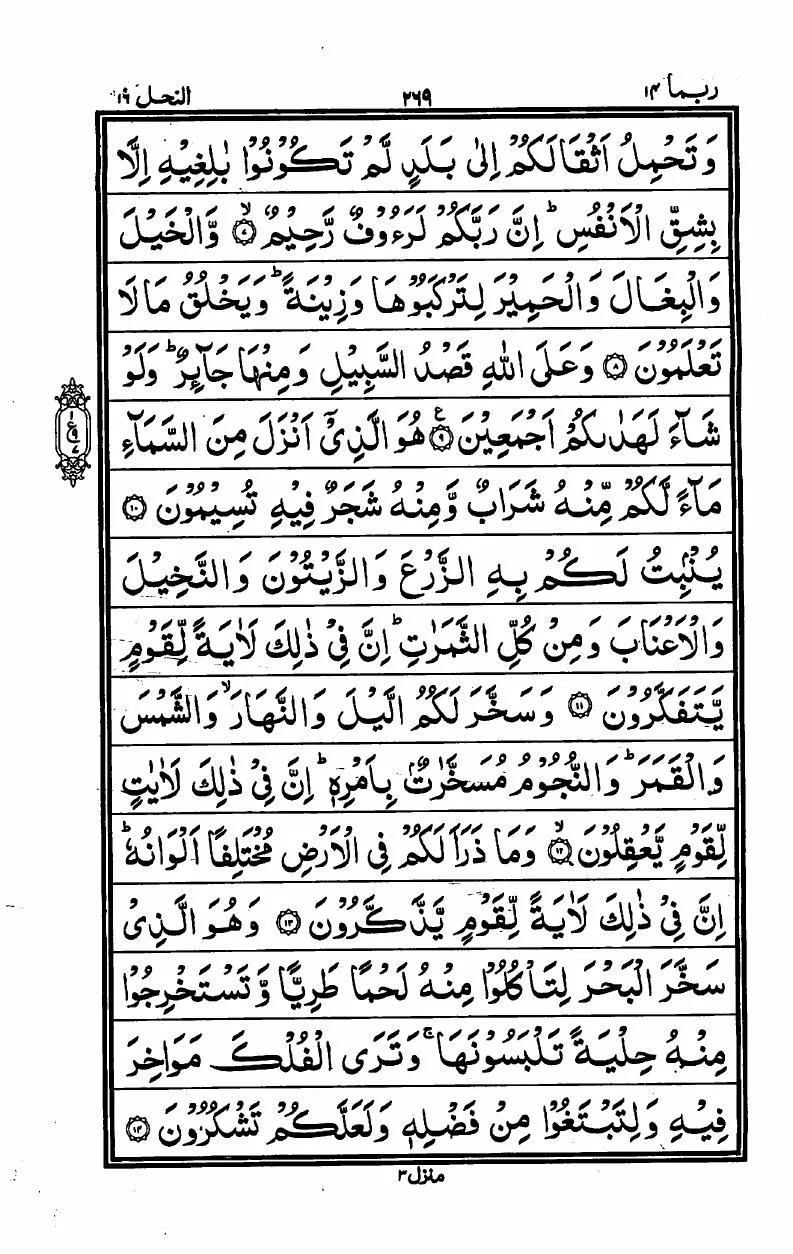 ربما ١٤
٢٦٩
النحل ١٦
وَتَحْمِلُ اَثْقَالَكُمْ اِلٰى بَلَدٍ لَّمْ تَكُوْنُوْا بٰلِغِيْهِ اِلَّا
بِشِقِّ الْاَنْفُسِ ؕ اِنَّ رَبَّكُمْ لَرَءُوْفٌ رَّحِيْمٌ ۙ﴿۷﴾ وَّالْخَيْلَ
وَالْبِغَالَ وَالْحَمِيْرَ لِتَرْكَبُوْهَا وَزِيْنَةً ؕ وَيَخْلُقُ مَا لَا
تَعْلَمُوْنَ ﴿۸﴾ وَعَلَى اللّٰهِ قَصْدُ السَّبِيْلِ وَمِنْهَا جَآئِرٌ ؕ وَلَوْ
شَآءَ لَهَدٰىكُمْ اَجْمَعِيْنَ ﴿۹﴾ ع هُوَ الَّذِىْۤ اَنْزَلَ مِنَ السَّمَآءِ
مَآءً لَّكُمْ مِّنْهُ شَرَابٌ وَّمِنْهُ شَجَرٌ فِيْهِ تُسِيْمُوْنَ ﴿۱۰﴾
يُنْۢبِتُ لَكُمْ بِهِ الزَّرْعَ وَالزَّيْتُوْنَ وَالنَّخِيْلَ
وَالْاَعْنَابَ وَمِنْ كُلِّ الثَّمَرٰتِ ؕ اِنَّ فِىْ ذٰلِكَ لَاٰيَةً لِّقَوْمٍ
يَّتَفَكَّرُوْنَ ﴿۱۱﴾ وَسَخَّرَ لَكُمُ الَّيْلَ وَالنَّهَارَ ۙ وَالشَّمْسَ
وَالْقَمَرَ ؕ وَالنُّجُوْمُ مُسَخَّرٰتٌۢ بِاَمْرِهٖ ؕ اِنَّ فِىْ ذٰلِكَ لَاٰيٰتٍ
لِّقَوْمٍ يَّعْقِلُوْنَ ۙ﴿۱۲﴾ وَمَا ذَرَاَ لَكُمْ فِى الْاَرْضِ مُخْتَلِفًا اَلْوَانُهٗ ؕ
اِنَّ فِىْ ذٰلِكَ لَاٰيَةً لِّقَوْمٍ يَّذَّكَّرُوْنَ ﴿۱۳﴾ وَهُوَ الَّذِىْ
سَخَّرَ الْبَحْرَ لِتَاْكُلُوْا مِنْهُ لَحْمًا طَرِيًّا وَّتَسْتَخْرِجُوْا
مِنْهُ حِلْيَةً تَلْبَسُوْنَهَا ۚ وَتَرَى الْفُلْكَ مَوَاخِرَ
فِيْهِ وَلِتَبْتَغُوْا مِنْ فَضْلِهٖ وَلَعَلَّكُمْ تَشْكُرُوْنَ ﴿۱۴﴾
منزل ٣